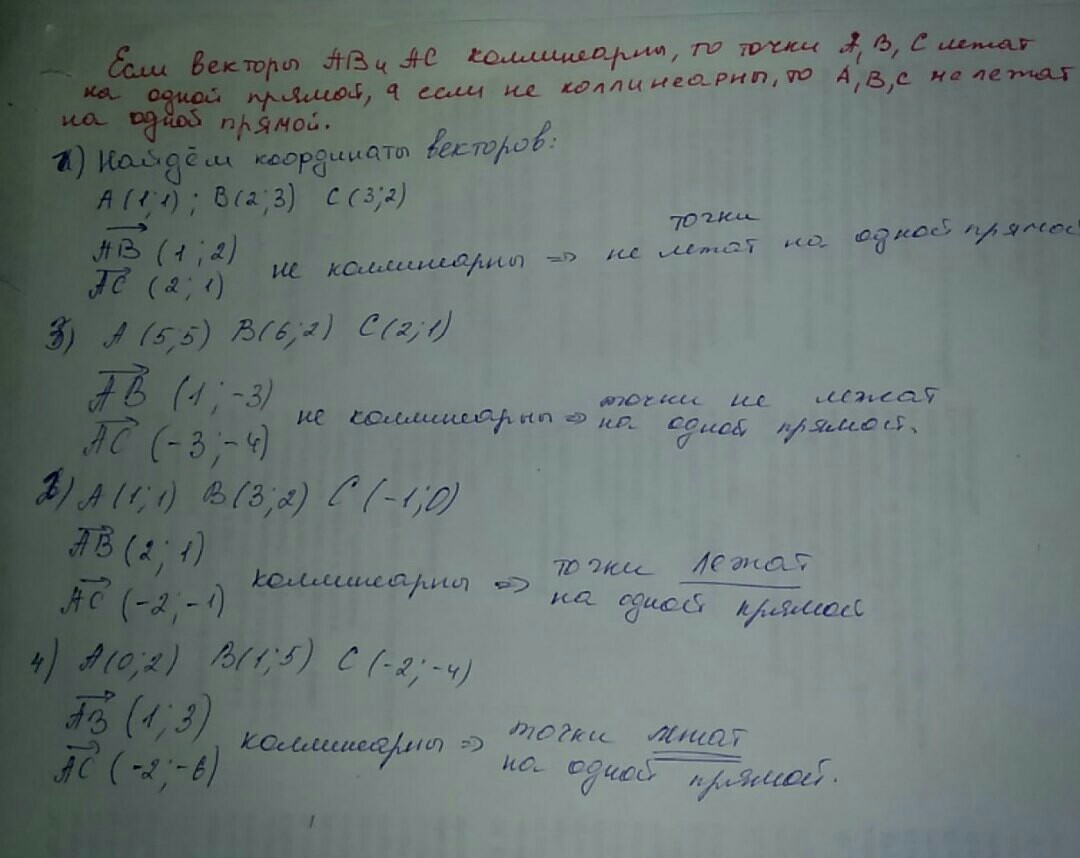 Если векторы АВ и АС коллинеарны, то точки А, В, С лежат
на одной прямой, а если не коллинеарны, то А, В, С не лежат
на одной прямой.
1) Найдём координаты векторов:
А(1;1); В(2;3) С(3;2)
АВ (1;2)
АС (2;1)
не коллинеарны => точки не лежат на одной прямой
3) А(5;5) В(6;2) С(2;1)
АВ (1;-3)
АС (-3;-4)
не коллинеарны => точки не лежат
на одной прямой.
2) А(1;1) В(3;2) С(-1;0)
АВ (2;1)
АС (-2;-1)
коллинеарны => точки лежат
на одной прямой
4) А(0;2) В(1;5) С(-2;-4)
АВ (1;3)
АС (-2;-6)
коллинеарны => точки лежат
на одной прямой.